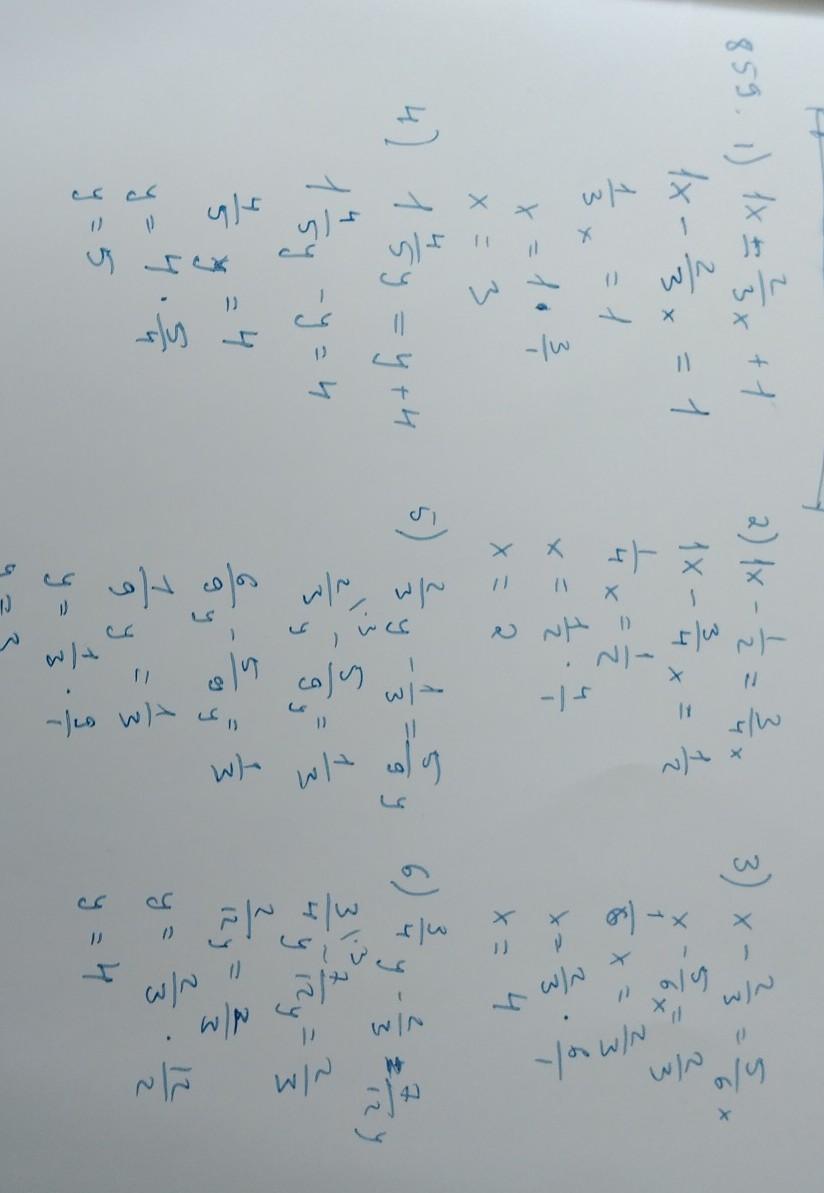 859. 1) 1x = 2/3 x + 1
1x - 2/3 x = 1
1/3 x = 1
x = 1 · 3/1
x = 3
2) 1x - 1/2 = 3/4 x
1x - 3/4 x = 1/2
1/4 x = 1/2
x = 1/2 · 4/1
x = 2
3) x - 2/3 = 5/6 x
x - 5/6 x = 2/3
1/6 x = 2/3
x = 2/3 · 6/1
x = 4
4) 1 4/5 y = y + 4
1 4/5 y - y = 4
4/5 y = 4
y = 4 · 5/4
y = 5
5) 2/3 y - 1/3 = 5/9 y
2/3 \·3 y - 5/9 y = 1/3
6/9 y - 5/9 y = 1/3
1/9 y = 1/3
y = 1/3 · 9/1
y = 3
6) 3/4 y - 2/3 = 7/12 y
3/4 \·3 y - 7/12 y = 2/3
2/12 y = 2/3
y = 2/3 · 12/2
y = 4